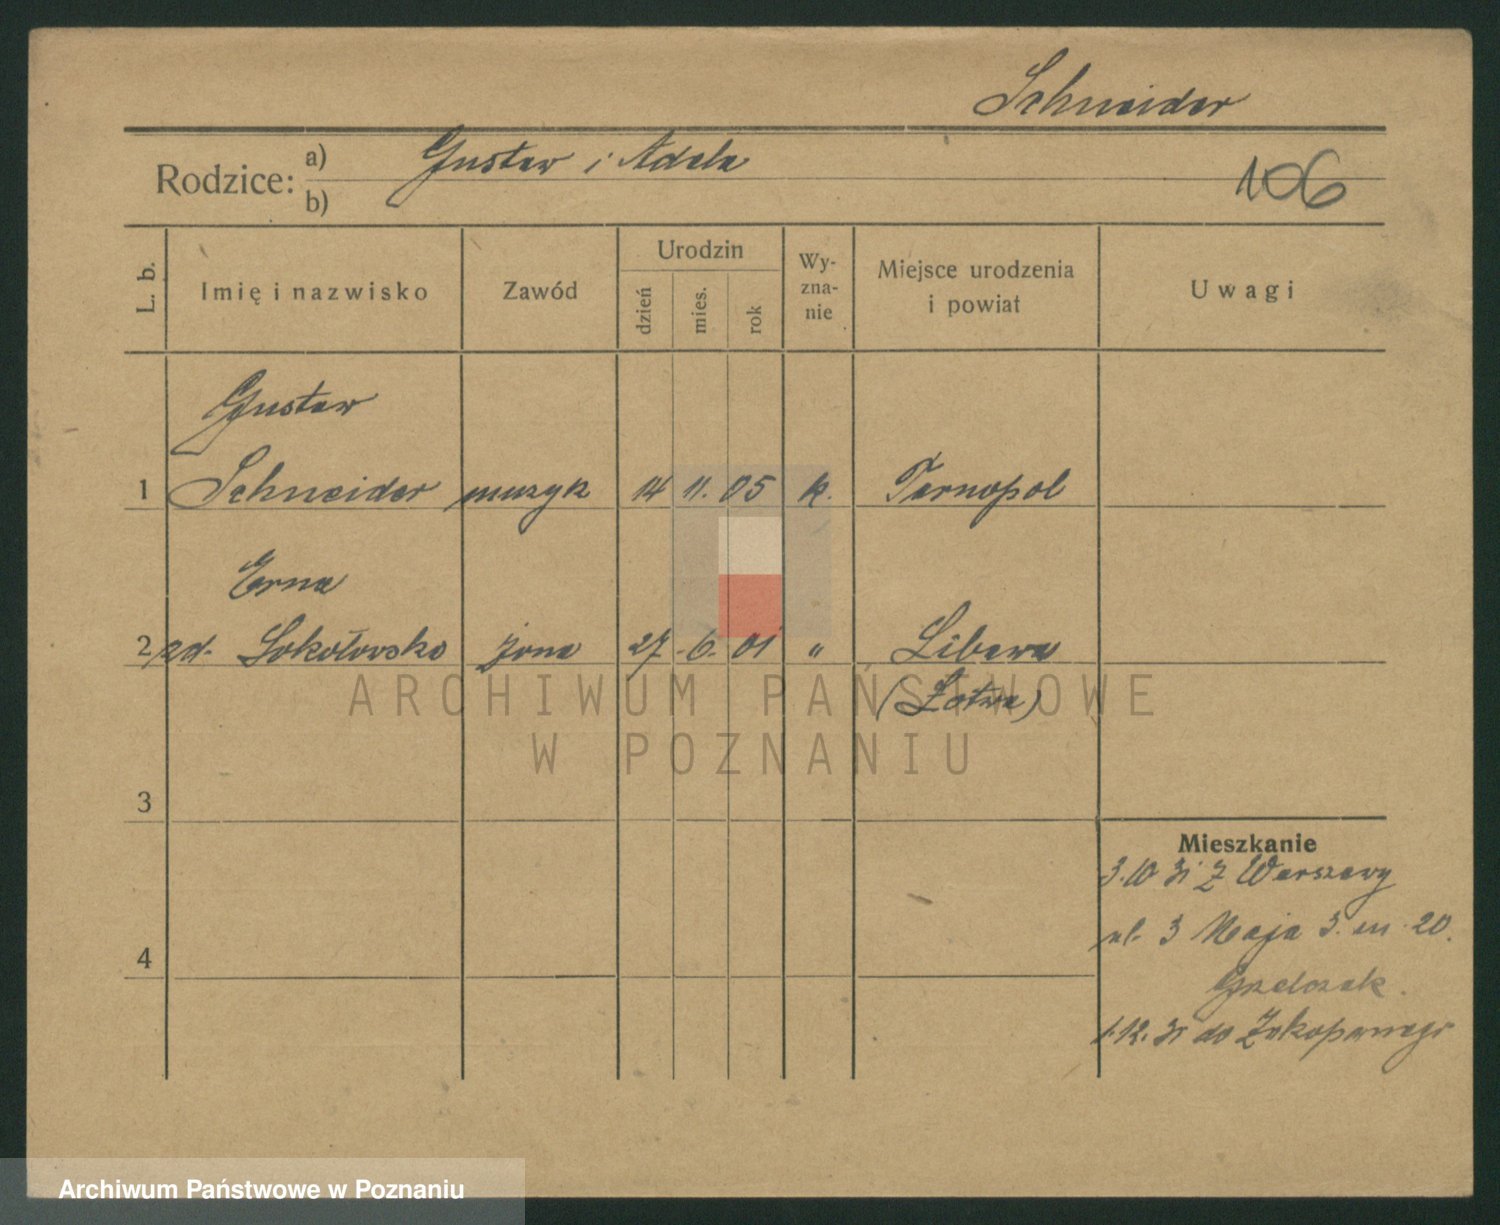 Schneider
Rodzice: a) Gustaw i Adela
b)
106
L. b.
Imię i nazwisko
Zawód
Urodzin
dzień
mies.
rok
Wy-
zna-
nie
Miejsce urodzenia
i powiat
Uwagi
Gustaw
1 Schneider muzyk 14 11. 05 k. Tarnopol
Erna
2 zd. Sokołovsko żona 27. 6. 01 " Libawa
(Łotwa)
ARCHIWUM PAŃSTWOWE
W POZNANIU
3
Mieszkanie
3.10 31 z Warszawy
ul. 3 Maja 3. m. 20.
4
Grzelczak.
1.12. 31 do Zakopanego
Archiwum Państwowe w Poznaniu